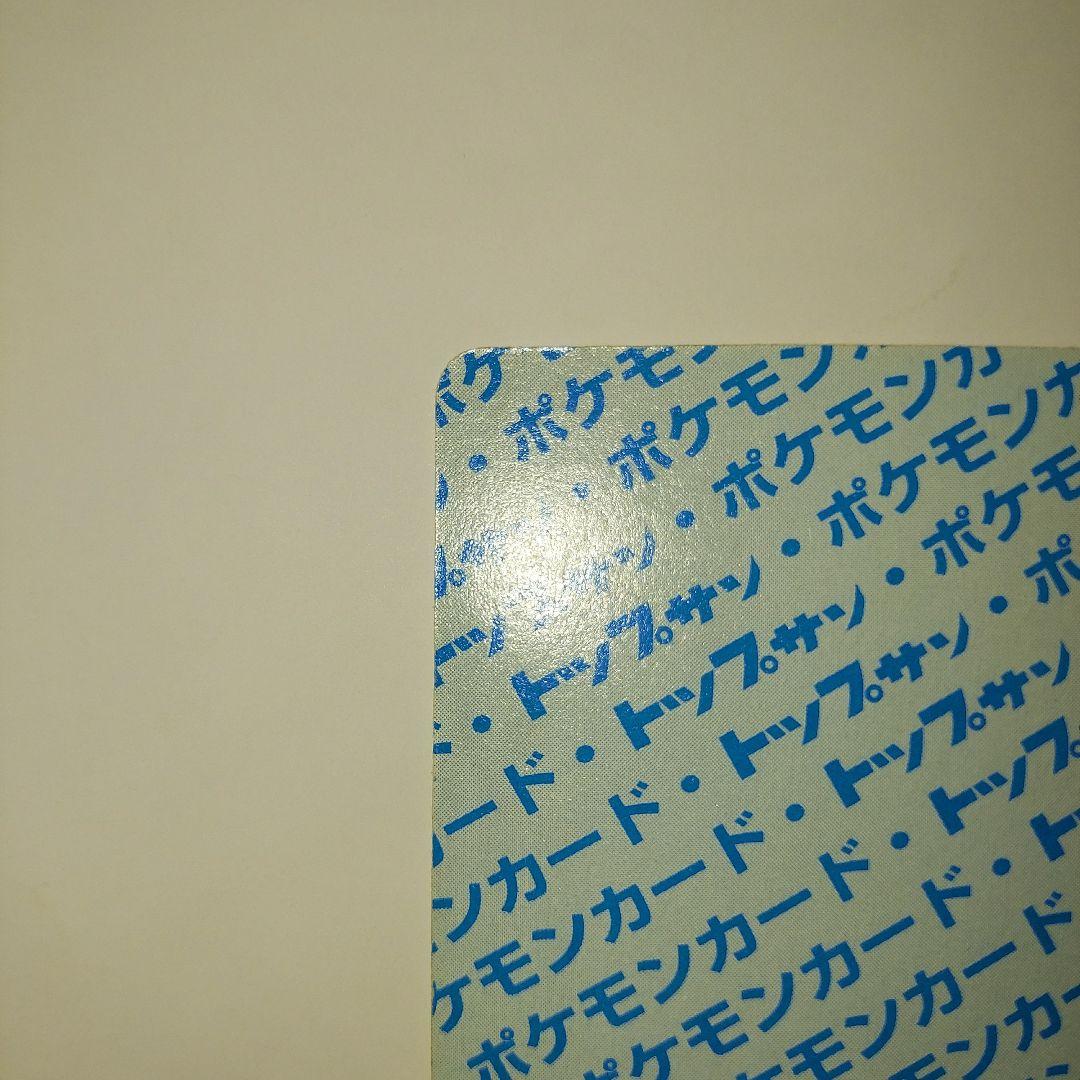 ポケ
ン・ポケモ
プサン・ポケモン
トップサン・ポケモンカ
・トップサン・ポケモンカ
カード・トップサン・ポケモ
ンカード・トップサン・ポ
ケモンカード・トップサン
ポケモンカード・トップ
ポケモンカード・ト
モンカード
ンカ